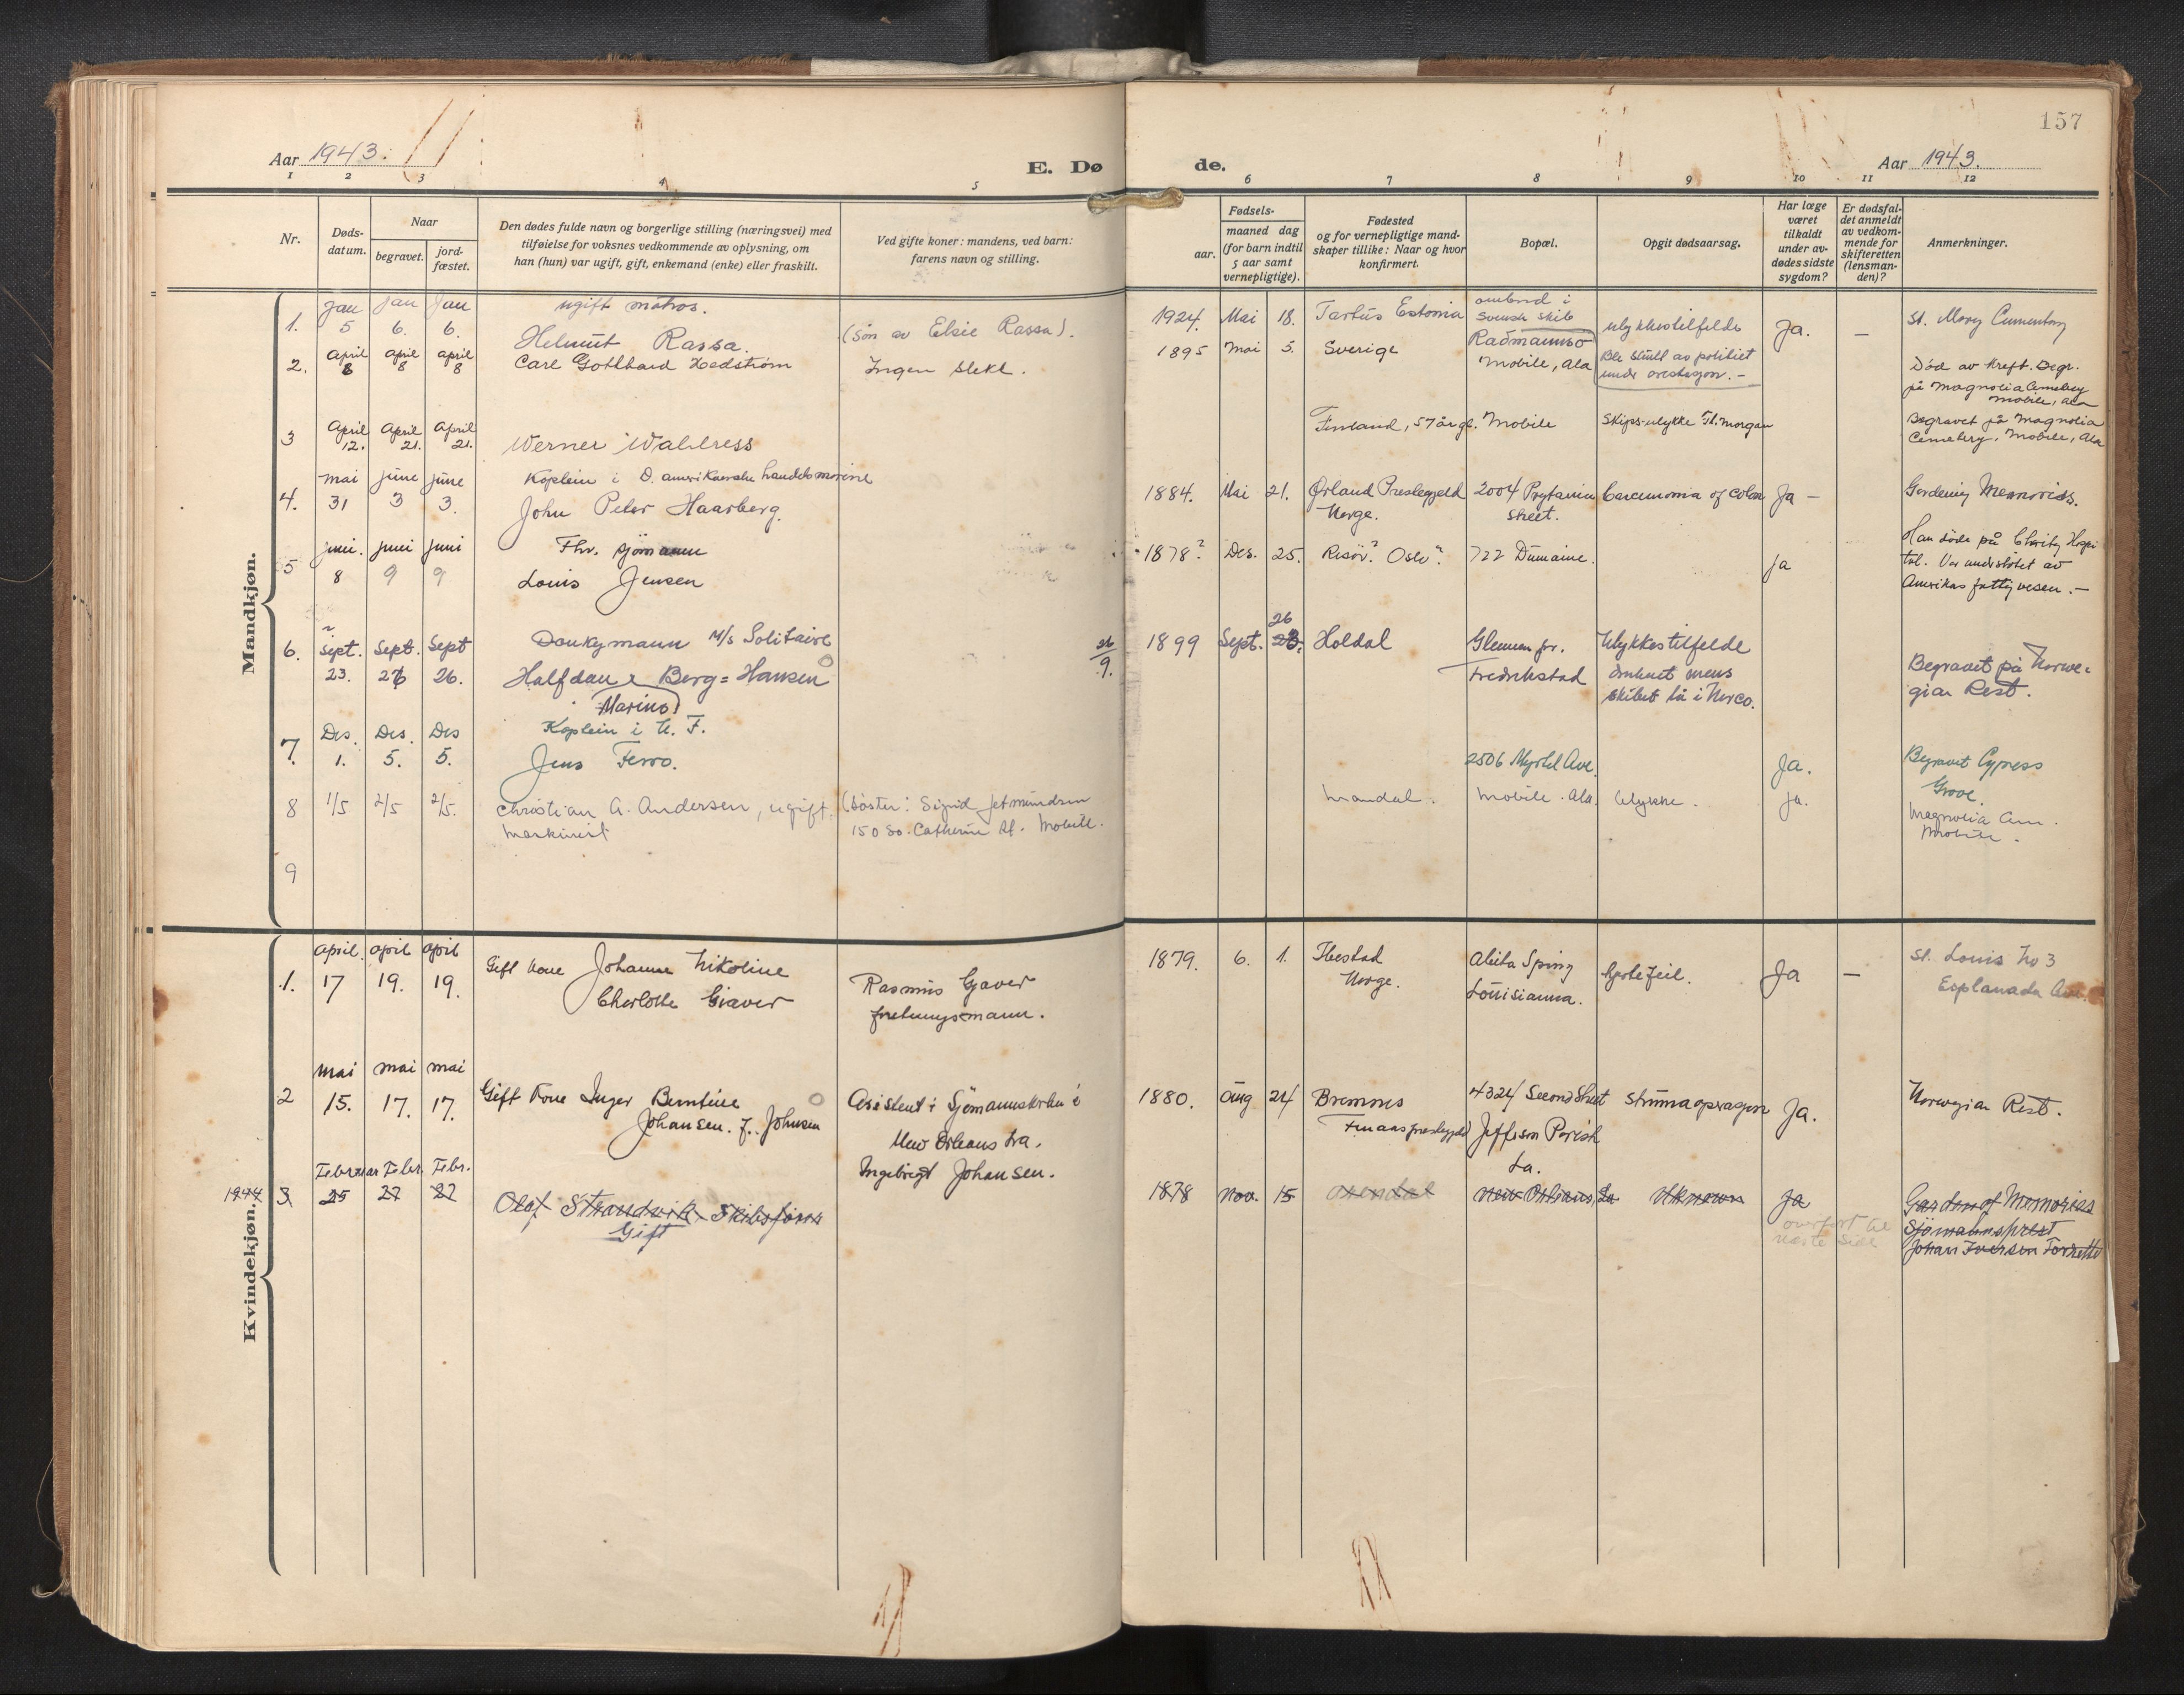 157
Aar 1943.
E. Døde.
Aar 1943.
1 2 3 4 5 6 7 8 9 10 11 12
Nr.
Døds-
datum.
Naar
begravet.
jord-
fæstet.
Den dødes fulde navn og borgerlige stilling (næringsvei) med
tilføielse for voksnes vedkommende av oplysning, om
han (hun) var ugift, gift, enkemand (enke) eller fraskilt.
Ved gifte koner: mandens, ved barn:
farens navn og stilling.
Fødsels-
aar.
maaned dag
(for barn indtil
5 aar samt
vernepligtige).
Fødested
og for vernepligtige mand-
skaper tillike: Naar og hvor
konfirmert.
Bopæl.
Opgit dødsaarsag.
Har læge
været
tilkaldt
under av-
dødes sidste
sygdom?
Er dødsfal-
det anmeldt
av vedkom-
mende for
skifteretten
(lensman-
den)?
Anmerkninger.
Mandkjøn.
1. Jan 5 Jan 6. Jan 6.
ugift matros.
Helmut Rassa.
(Søn av Elsie Rassa).
1924. Mai 18.
Tartus Estonia
ombord i
Svensk skib
Radmannsø
ulykkestilfelde
Ja. —
St. Mary Cumentary
2. April 8 April 8 April 8
Carl Gotthard Hedstrøm
Ingen slekt.
1895 Mai 5.
Sverige
Mobile, Ala
Ble skutt av politiet
under arrestasjon. -
Død av kreft. Begr.
på Magnolia Cemetery
Mobile, Ala
3 April 12. April 21. April 21.
Werner Wahlress
Finland, 57 år gl.
Mobile
Skips-ulykke
Begravet på Magnolia
Cemetery, Mobile, Ala
4. mai 31 june 3 june 3.
Kaptein i D. amerikanske handelsmarine
John Peter Haarberg.
1884. Mai 21.
Ørland Prestegjeld
Norge.
2004 Prytania
Street.
Carcinomia of colon
Ja —
Gardening Memoriss.
5 juni. 8 juni 9 juni 9
Fhv. sjømann
Louis Jensen
1878? Des. 25.
Risør? Oslo?
722 Dumaine.
ja
Han døde på Charity Hospi
tal. Var understøtet av
Amerikas fattigvesen. —
6. Sept. 23. Sept. 26 Sept 26.
Donkymann M/s Solitaire
Halfdan Berg=Hansen
(Marino)
26/9.
1899 Sept. 23. 26
Holdal
Glemmen pr.
Fredrikstad
Ulykkestilfelde
druknet mens
skibet lå i Norco.
Begravet på Norwe-
gian Rest.
7. Des. 1. Des. 5. Des 5.
Kaptein i U. F.
Jens Ferro.
2506 Myrtel Ave.
Ja.
Begravet Cypress
Grove.
8 1/5 2/5 2/5.
Christian A. Andersen, ugift.
Maskinist
(Søster: Sigrid
150 So. Catherine St. Mobile.
Mandal.
Mobile. Ala.
Ulykke.
ja.
Magnolia Cem.
Mobile.
9
Kvindekjøn.
1. April 17 april 19. april 19.
Gift kone Johanne Nikoline
Charlotte Giaver
Rasmus Gjaver
forretningsmann.
1879. 6. 1.
Ibestad
Norge.
Abita Spring
Louisianna.
Hjertefeil.
Ja —
St. Louis No 3
Esplanada Ave.
2 mai 15. mai 17. mai 17.
Gift Kone Inger Berntine
Johansen. f. Johnsen
Assistent i Sjømannskirken i
New Orleans La.
Ingebrigt Johansen.
1880. Aug 24
Bremnes
Finaas prestegjeld
4324 Second Street
Jefferson Parish
La.
Struma operasjon
Ja.
Norwegian Rest.
1944 3 Februar 25 Febr. 27 Febr. 27
Olaf Strandvik, Skibsfører
Gift
1878 Nov. 15
Arendal
New Orleans, La
Uknown
Ja
overført til
neste side
Garden of Memories
Sjømannsprest
Johan Iversen Forrettet